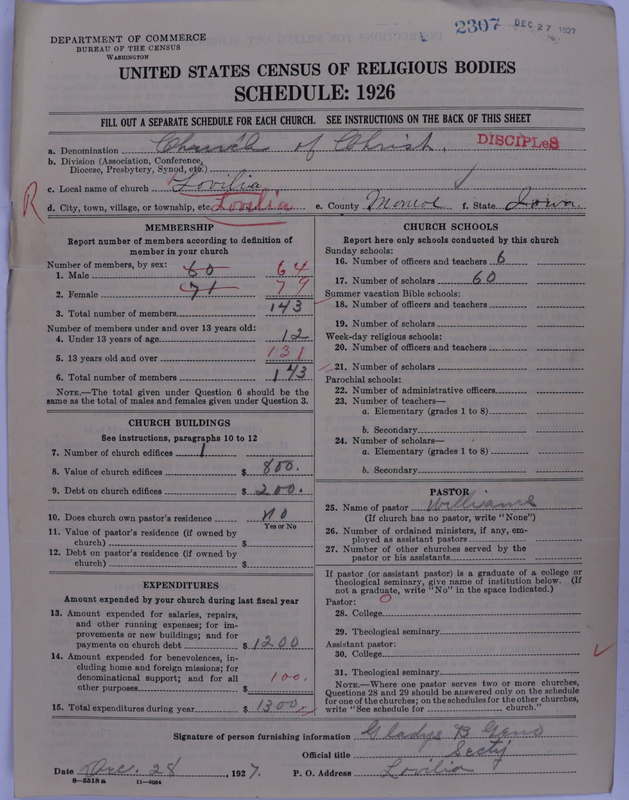 2307 DEC 27 1927
DEPARTMENT OF COMMERCE
BUREAU OF THE CENSUS
WASHINGTON
UNITED STATES CENSUS OF RELIGIOUS BODIES
SCHEDULE: 1926
FILL OUT A SEPARATE SCHEDULE FOR EACH CHURCH. SEE INSTRUCTIONS ON THE BACK OF THIS SHEET
a. Denomination Church of Christ. DISCIPLeS
b. Division (Association, Conference,
Diocese, Presbytery, Synod, etc.)
c. Local name of church Lovilia
R d. City, town, village, or township, etc. Lovilia e. County Monroe f. State Iowa.
MEMBERSHIP
Report number of members according to definition of
member in your church
Number of members, by sex:
1. Male 60 64
2. Female 71 79
3. Total number of members 143
Number of members under and over 13 years old:
4. Under 13 years of age 12
5. 13 years old and over 131
6. Total number of members 143
NOTE.—The total given under Question 6 should be
same as the total of males and females given under Question 3.
CHURCH BUILDINGS
See instructions, paragraphs 10 to 12
7. Number of church edifices 1
8. Value of church edifices $ 800.
9. Debt on church edifices $ 200.
10. Does church own pastor's residence No
Yes or No
11. Value of pastor's residence (if owned by
church) $
12. Debt on pastor's residence (if owned by
church) $
EXPENDITURES
Amount expended by your church during last fiscal year
13. Amount expended for salaries, repairs,
and other running expenses; for im-
provements or new buildings; and for
payments on church debt $ 1200
14. Amount expended for benevolences, in-
cluding home and foreign missions; for
denominational support; and for all
other purposes $ 100.
15. Total expenditures during year $ 1300
CHURCH SCHOOLS
Report here only schools conducted by this church
Sunday schools:
16. Number of officers and teachers 6
17. Number of scholars 60
Summer vacation Bible schools:
18. Number of officers and teachers
19. Number of scholars
Week-day religious schools:
20. Number of officers and teachers
21. Number of scholars
Parochial schools:
22. Number of administrative officers
23. Number of teachers—
a. Elementary (grades 1 to 8)
b. Secondary
24. Number of scholars—
a. Elementary (grades 1 to 8)
b. Secondary
PASTOR
25. Name of pastor Williams
(If church has no pastor, write "None")
26. Number of ordained ministers, if any, em-
ployed as assistant pastors
27. Number of other churches served by the
pastor or his assistants
If pastor (or assistant pastor) is a graduate of a college or
theological seminary, give name of institution below. (If
not a graduate, write "No" in the space indicated.)
Pastor:
28. College
29. Theological seminary
Assistant pastor:
30. College
31. Theological seminary
NOTE.—Where one pastor serves two or more churches,
Questions 28 and 29 should be answered only on the schedule
for one of the churches; on the schedules for the other churches,
write "See schedule for church."
Signature of person furnishing information Gladys B
Official title Secty
Date Dec. 28, 1927. P. O. Address Lovilia
8—5518 a 11—9034